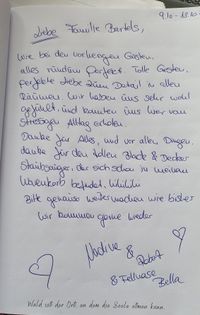 9.10 - 13.10.
Liebe Familie Bartels,
wie bei den vorherigen Gästen,
alles rundum perfekt. Tolle Gesten,
perfekte Liebe zum Detail in allen
Räumen. Wir haben uns sehr wohl
gefühlt und konnten uns hier vom
stressigen Alltag erholen.
Danke für Alles, und vor allen Dingen,
danke für den tollen Black & Decker
Staubsauger, der sich schon in meinem
Warenkorb befindet. hihihihi
Bitte genauso weitermachen wie bisher
Wir kommen gerne wieder
Nadine &
Robert
& Fellnase
Bella
Wald ist der Ort an dem die Seele atmen kann.